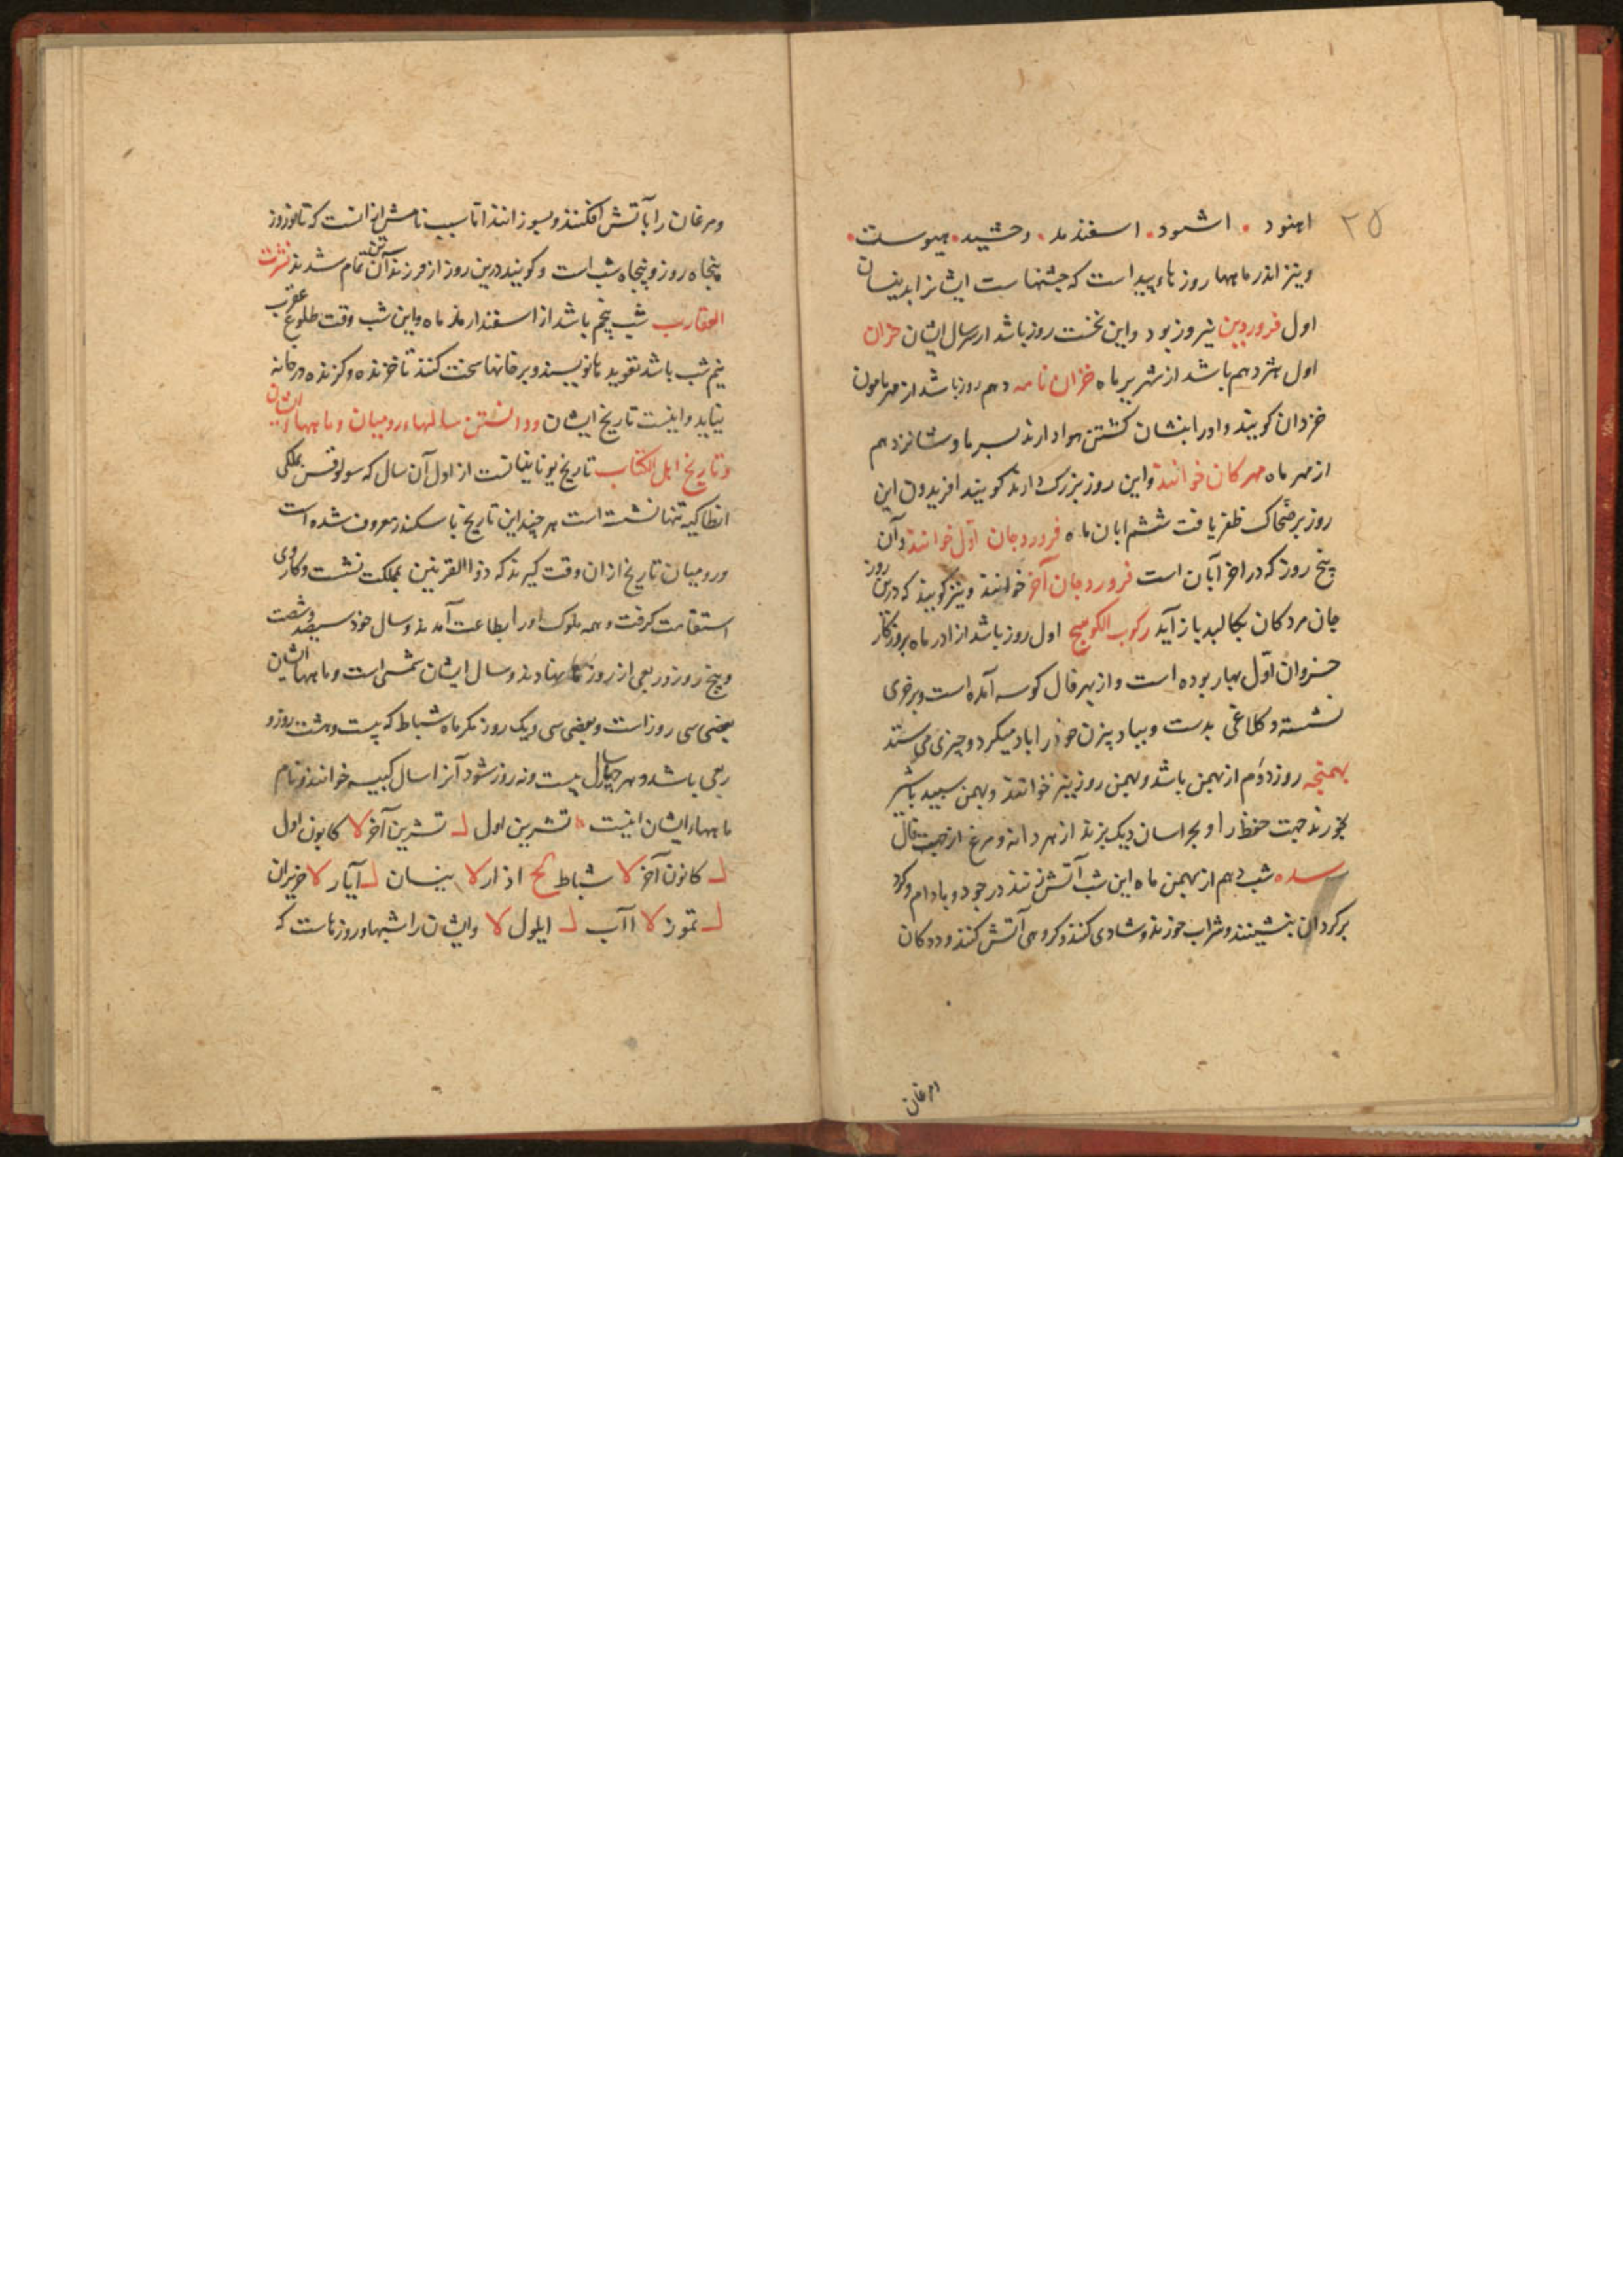 ۲۵
اهنود • اشنود • اسفندمد • وخشید • هیوست •
ونیز اندر ماهها روزهاء پیداست که جشنهاست ایشانرا بدینسان
اول فروردین نیروز بود واین نخست روز باشد از سال ایشان خزان
اول هژدهم باشد از شهریر ماه خزان نامه دهم روز باشد از مهر ماه
خزدان کویند واورا نشان کشتن هوا دارند بسرما وشانزدهم
از مهر ماه مهرکان خوانند واین روز بزرک دارند کویند افریدون این
روز بر ضحاک ظفر یافت ششم ابان ماه فروردجان اول خوانند وآن
پنج روز که در اخر آبان است فروردجان آخر خوانند ونیز کویند که درین روز
جان مردکان بکالبد باز آید رکوب الکوسج اول روز باشد از اذر ماه بروزکار
خسروان اول بهار بوده است واز بهر فال کوسه آمده است وبر خری
نشسته وکلاغی بدست وببادبیزن خودرا باد میکرد وچیزی می ستد
بهمنجه روز دوم از بهمن باشد وبهمن روز نیز خوانند وبهمن سپید باشیر
بخورند جهت حفظ را وبخراسان دیک پزند از هر دانه ومرغ از جهت فال
سده شب دهم از بهمن ماه این شب آتش زنند در جود وبادام وکرد
بر کرد آن بنشینند وشراب خورند وشادی کنند وکروهی آتش کنند وددکان
ومرغان
ومرغان را بآتش افکنند وبسوزانند اما سبب نامش ازانست که تا نوروز
پنجاه روز وپنجاه شب است وکویند درین روز از فرزندآن تمام شدند نشرت
العقارب شب پنجم باشد از اسفندارمذ ماه واین شب وقت طلوع عقرب
نیم شب باشد تعویدها نویسند وبر خانها سخت کنند تا خزنده وکزنده در خانه
نیاید واینست تاریخ ایشان ودانستن سالهاء رومیان وماههاء ایشان
وتاریخ اهل الکتاب تاریخ یونانیانست از اول آن سال که سولوقس بملکی
انطاکیه تنها نشست است هر چند این تاریخ باسکندر معروف شده است
ورومیان تاریخ ازان وقت کیرند که ذو القرنین بملکت نشست وکار وی
استقامت کرفت وهمه ملوک اورا بطاعت آمدند وسال خود سیصد وشصت
وپنج روز وربعی از روز نهادند وسال ایشان شمسی است وماههاء ایشان
بعضی سی روز است وبعضی سی ویک روز مکر ماه شباط که بیست وهشت روز و
ربعی باشد وهر چهار سال بیست ونه روز شود آنرا سال کبیسه خوانند ونام
ماهها ایشان اینست تشرین اول لا تشرین آخر ل کانون اول
لا کانون آخر لا شباط کح اذار لا نیسان ل آیار لا حزیران
ل تموز لا آب لا ایلول ل وایشان را شبها وروزهاست که